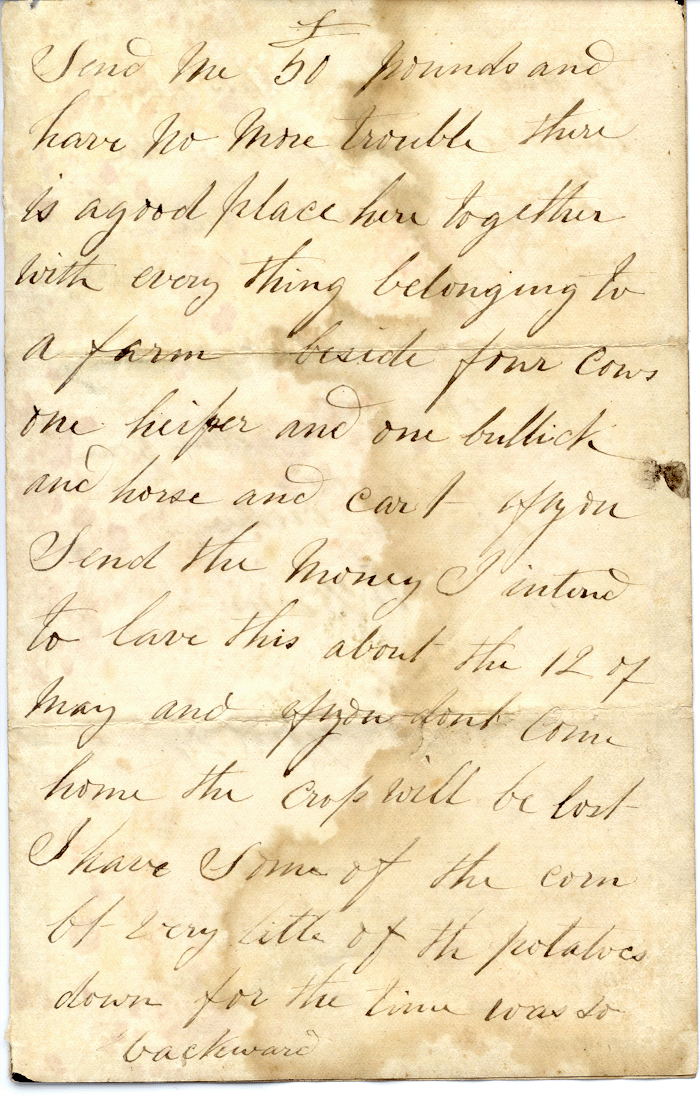 £
Send me 50 pounds and
have no more trouble there
is a good place here together
with every thing belonging to
a farm beside four cows
one heifer and one bullick
and horse and cart ifyou
Send the money I intend
to lave this about the 12 of
May and ifyou dont come
home the crop will be lost
I have Some of the corn
bt very little of th potatoes
down for the time was so
backward